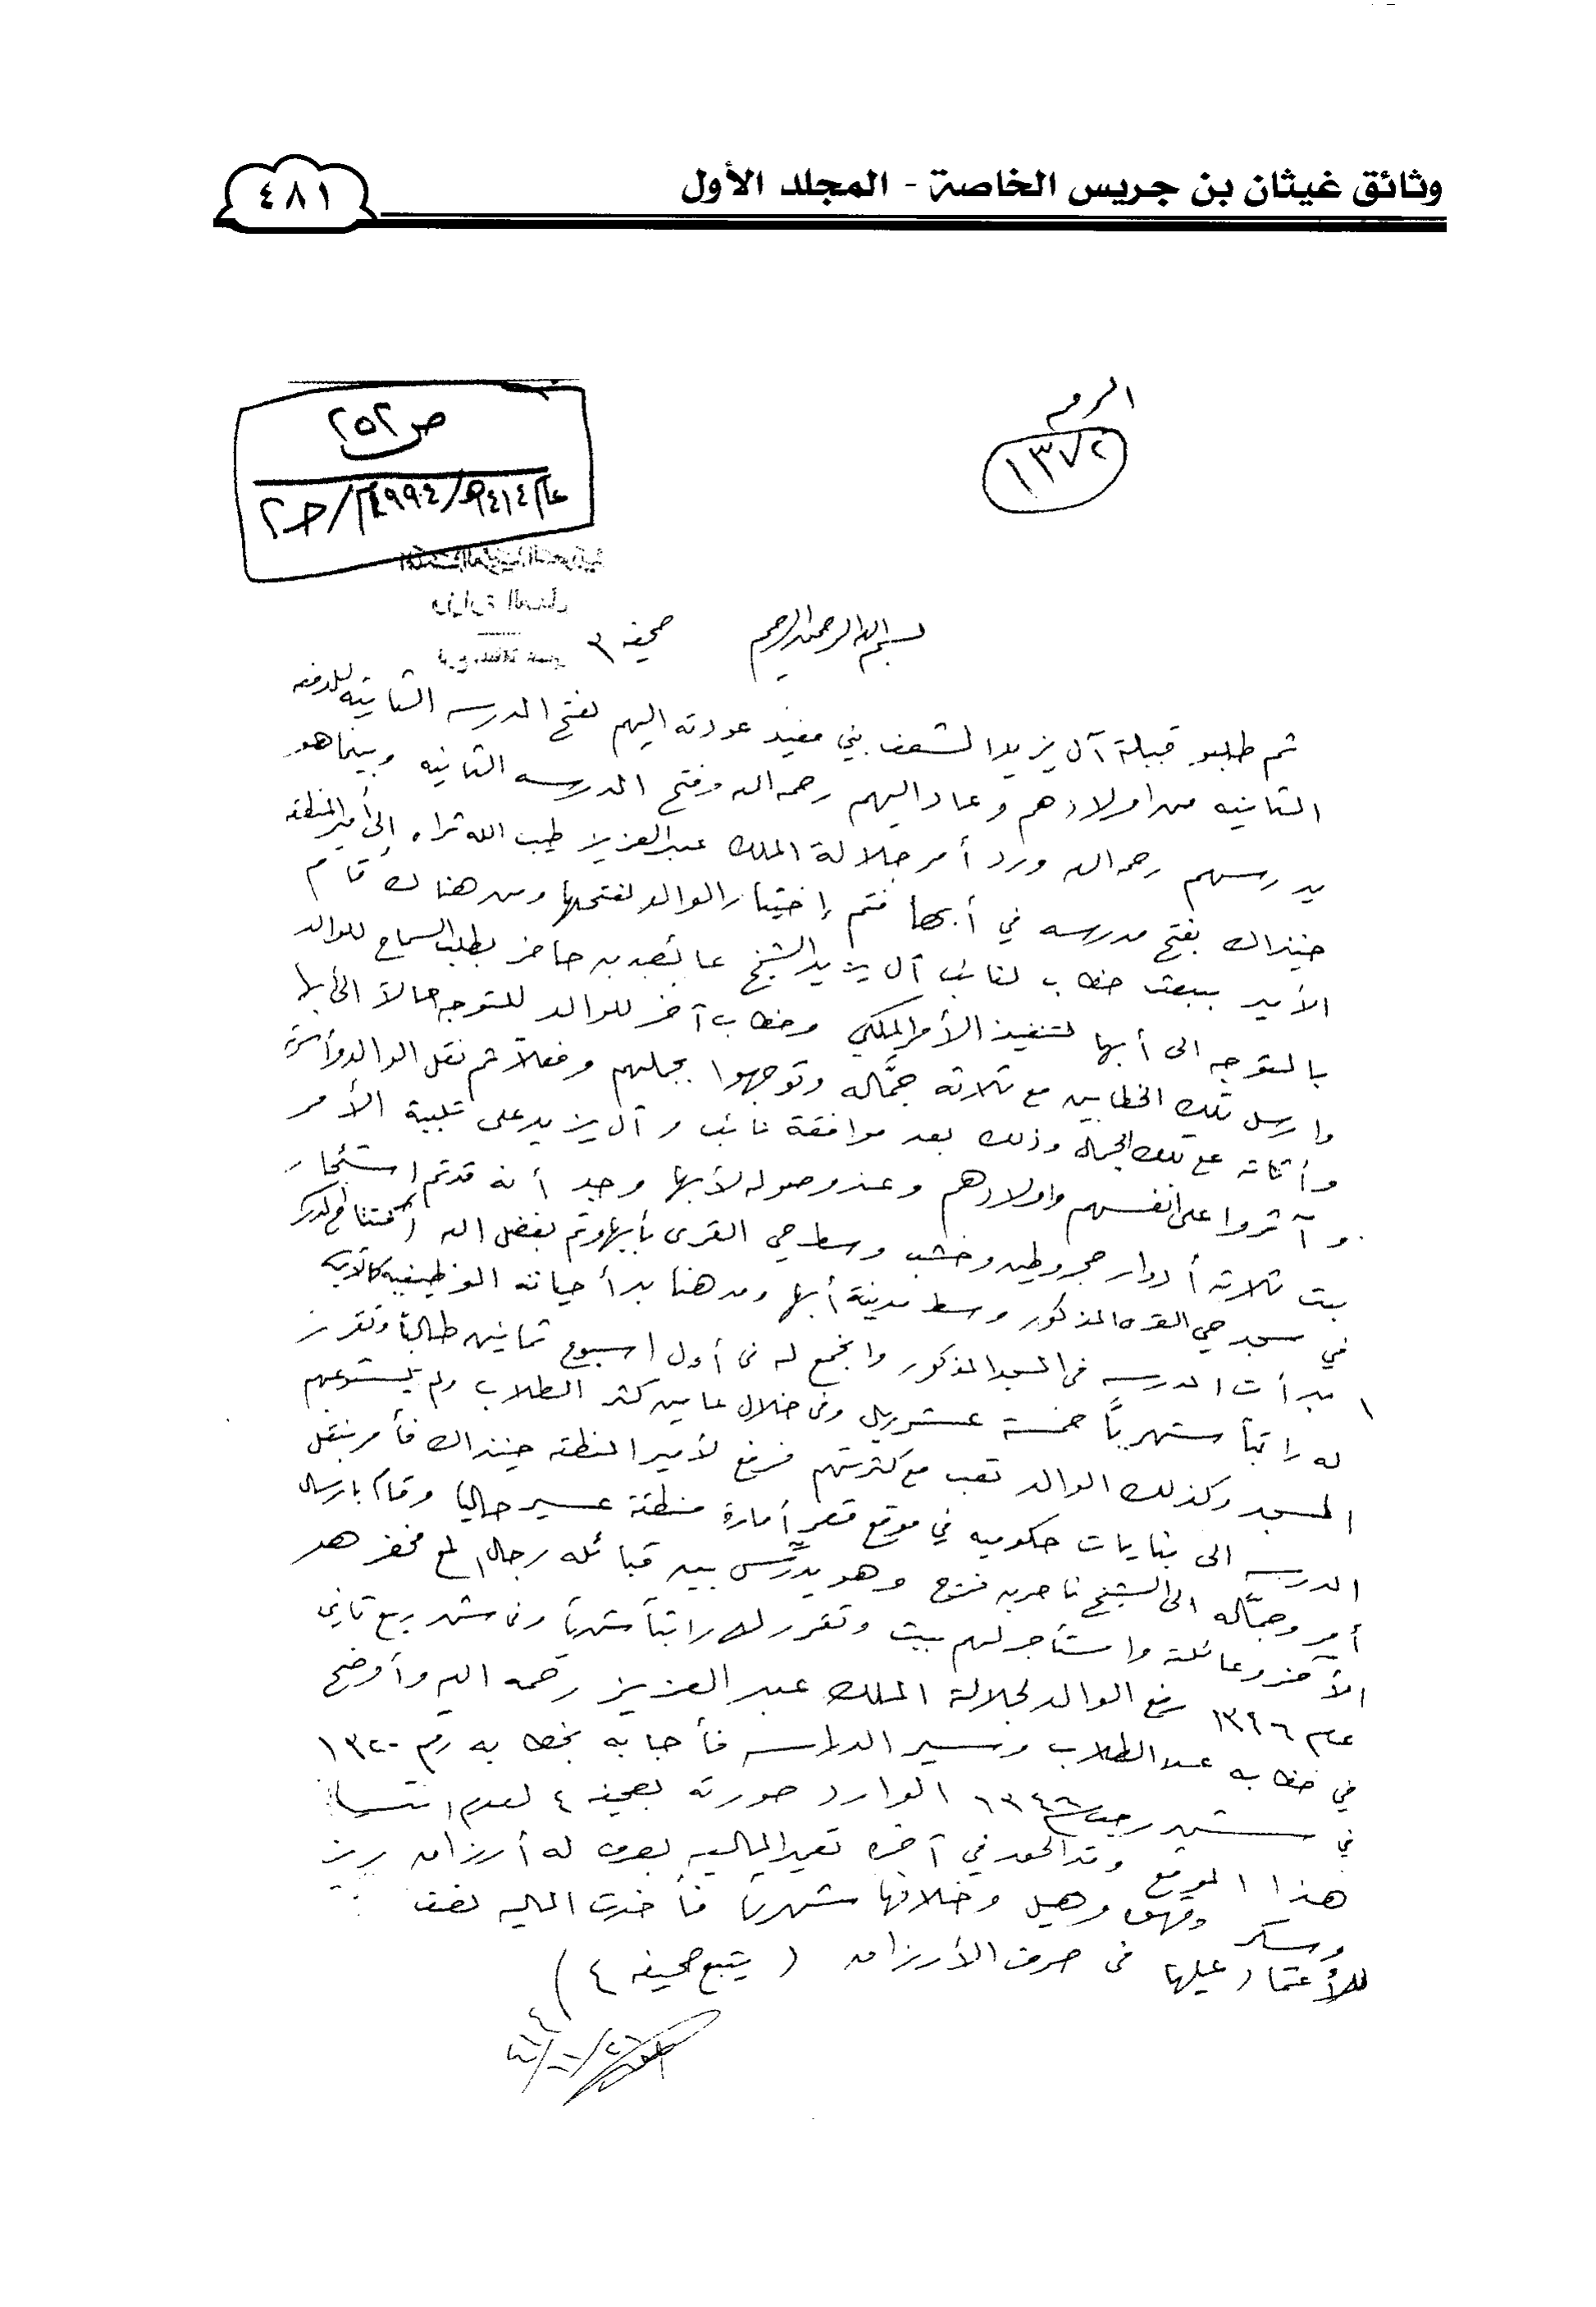 وثائق غيثان بن جريس الخاصة - المجلد الأول
٤٨١
الرقم
١٣٧٢
ص٢٥٢
بسم الله الرحمن الرحيم
صحيفه ٣
ثم طلبو قبيلة آل يزيد الشعف بني مفيد عودته اليهم لفتح المدرسه الثانيه للدفعه
الثانيه من اولادهم وعاد اليهم رحمه الله وفتح المدرسه الثانيه وبينما هو
يدرسهم رحمه الله ورد أمر جلالة الملك عبدالعزيز طيب الله ثراه إلى أمير المنطقه
حينذاك بفتح مدرسه في أبها فتم إختيار الوالد لفتحها ومن هناك قام
الأمير ببعث خطاب لنائب آل يزيد الشيخ عائض بن حاضر بطلب السماح للوالد
بالتوجه الى أبها لتنفيذ الأمر الملكي وخطاب آخر للوالد للتوجه حالاً الى أبها
وارسل تلك الخطابين مع ثلاثه جمَّاله وتوجهوا بجملهم وفعلاً تم نقل الوالد وأسرته
وأثاثه مع تلك الجماله وذلك بعد موافقة نائب وآل يزيد على تلبية الأمر
وآثروا على انفسهم واولادهم وعند وصوله لأبها وجد أنه قد تم استئجار
بيت ثلاثه أدوار حجر وطين وخشب وسط حي القرى بأبها وتم بفضل الله افتتاح المدرسه
في مسجد حي القرى المذكور وسط مدينة أبها ومن هنا بدأ حياته الوظيفيه كالآتي
١ بدأت المدرسه في المسجد المذكور واجتمع له في أول اسبوع ثمانين طالباً وتقرر
له راتباً شهرياً خمسة عشر ريال وفي خلال عامين كثر الطلاب ولم يستوعبهم
المسجد وكذلك الوالد تعب مع كثرتهم فرفع لأمير المنطقه حينذاك فأمر بنقل
المدرسه الى بنايات حكوميه في موقع قصر أمارة منطقة عسير حاليا وقام بارسال
أمر وجمَّاله الى الشيخ ناصر بن فرج وهو يدرِّس بين قبائله رجال ألمع فحضر هو
الآخر وعائلته واستأجر لهم بيت وتقرر له راتباً شهرياً وفي شهر ربيع ثاني
عام ١٣٤٦ رفع الوالد لجلالة الملك عبد العزيز رحمه الله وأوضح
في خطابه عدد الطلاب وسير الدراسه فأجابه بخطابه رقم ١٣٢٠
في شهر رجب ١٣٤٦ الوارد صورته بصحيفه ٤ لعدم
هذا الموقع وقد الحق في آخره تعميد الماليه بصرف له أرزاق
وسكر وقهوه وهيل وخلافها شهرياً فأخذت الماليه
للأعتماد عليها في صرف الأرزاق ( يتبع صحيفه ٤ )